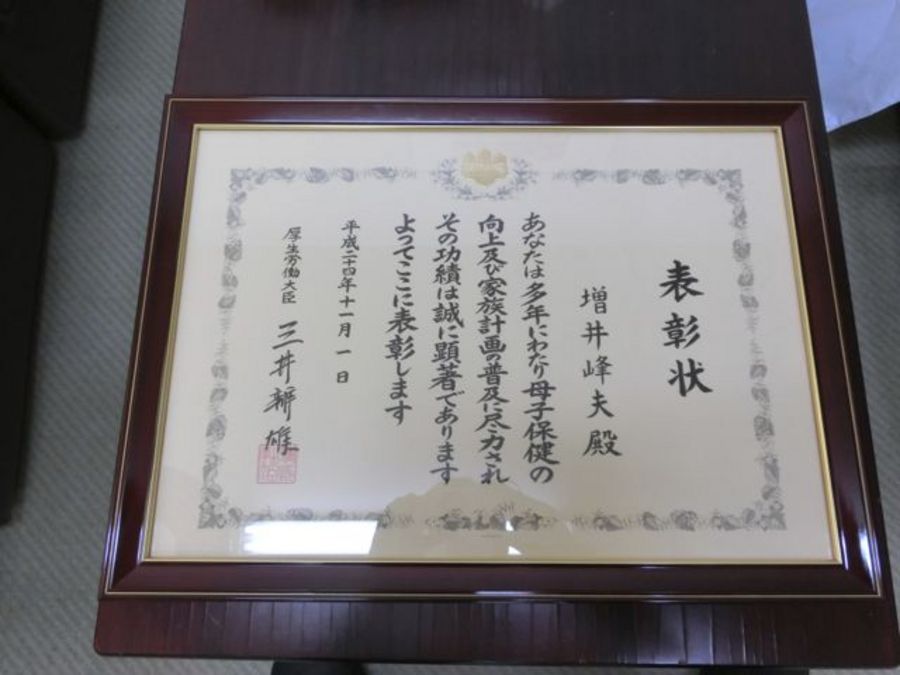 表彰状
増井峰夫殿
あなたは多年にわたり母子保健の
向上及び家族計画の普及に尽力され
その功績は誠に顕著であります
よってここに表彰します
平成二十四年十一月一日
厚生労働大臣 三井辨雄